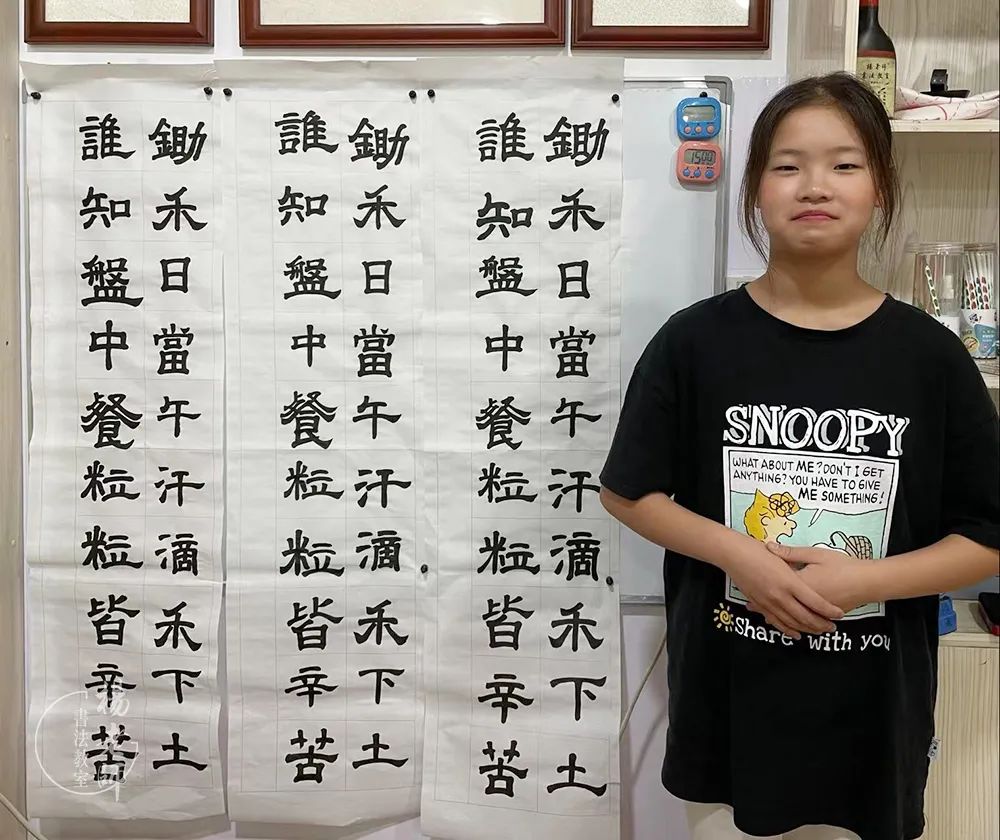 鋤禾日當午汗滴禾下土
誰知盤中餐粒粒皆辛苦
鋤禾日當午汗滴禾下土
誰知盤中餐粒粒皆辛苦
鋤禾日當午汗滴禾下土
誰知盤中餐粒粒皆辛苦
SNOOPY
WHAT ABOUT ME? DON'T I GET
ANYTHING? YOU HAVE TO GIVE
ME SOMETHING!
Share with you
1500
書法教室